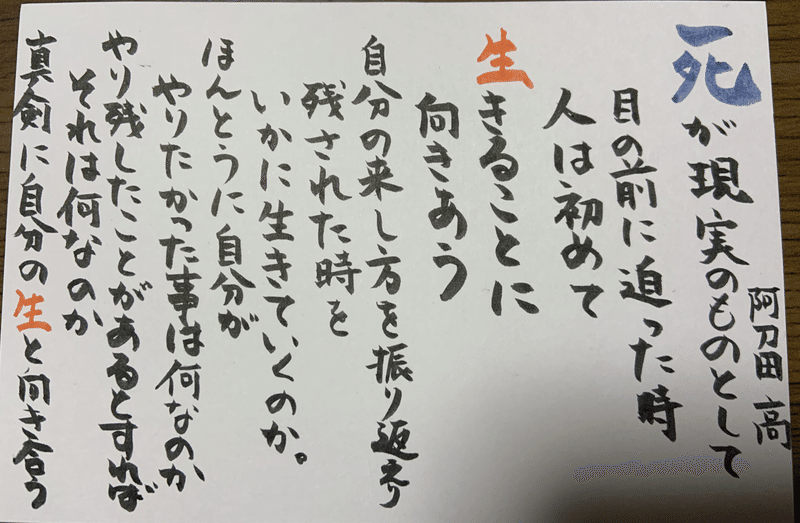 死が現実のものとして
阿刀田 高
目の前に迫った時
人は初めて
生きることに
向きあう
自分の来し方を振り返り
残された時を
いかに生きていくのか。
ほんとうに自分が
やりたかった事は何なのか
やり残したことがあるとすれば
それは何なのか
真剣に自分の生と向き合う